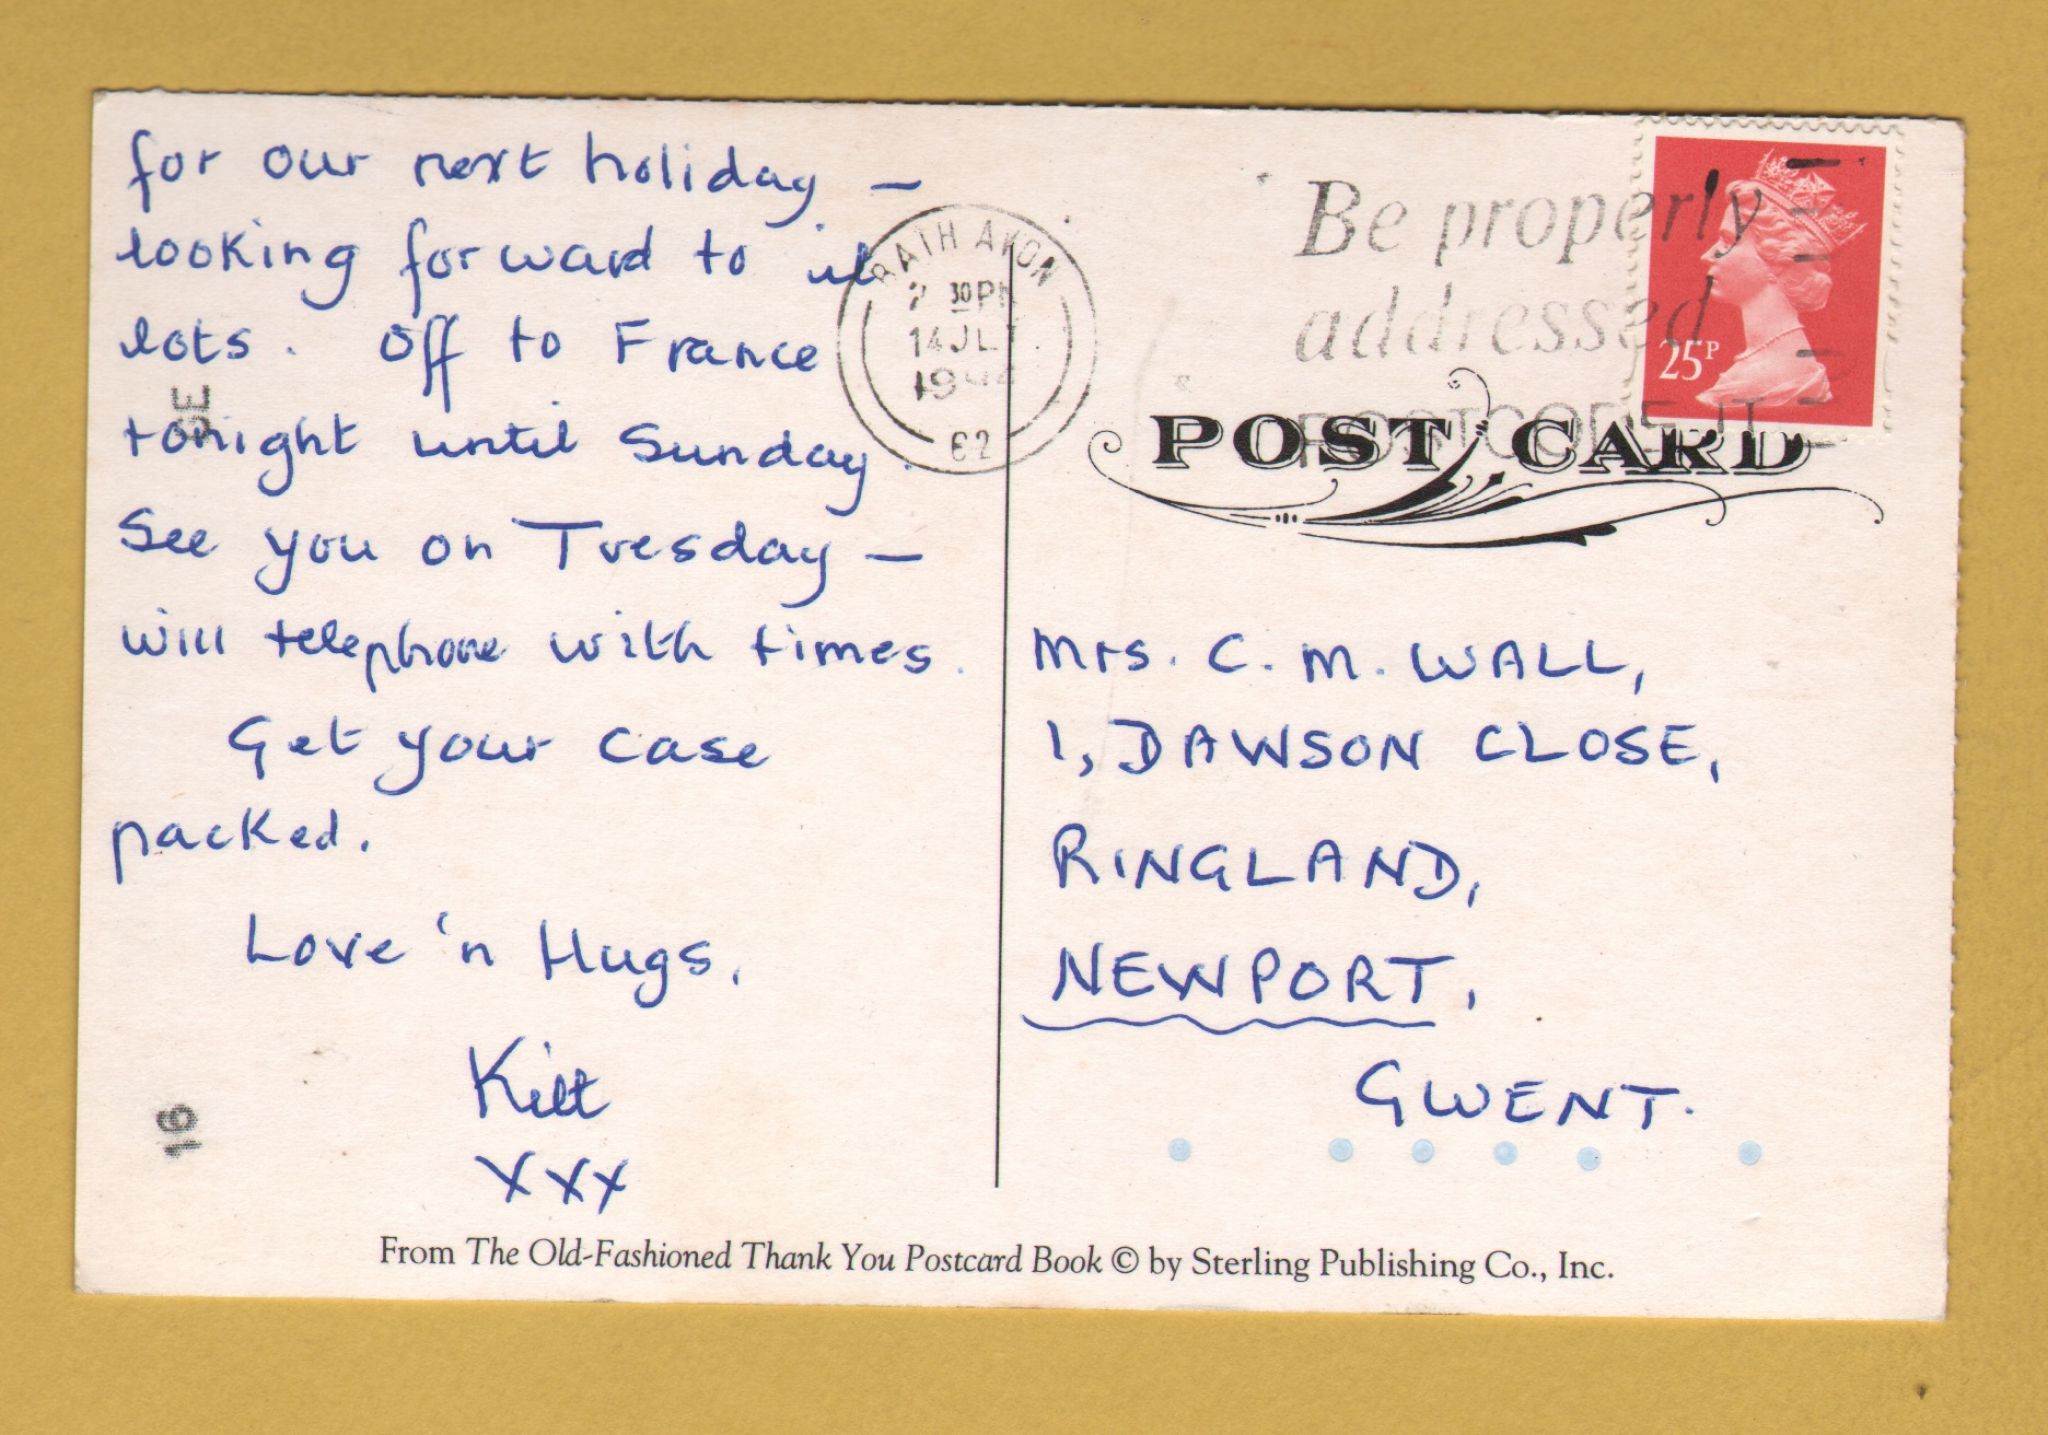 for our next holiday –
looking forward to it
lots. Off to France
tonight until Sunday.
See you on Tuesday –
will telephone with times.
Get your case
packed.
Love 'n Hugs,
xxx
BATH AVON
30PM
14 JLY
Be properly
addressed
POSTCODE IT
25P
POST CARD
Mrs. C. M. WALL,
1, DAWSON CLOSE,
RINGLAND,
NEWPORT,
GWENT.
16
From The Old-Fashioned Thank You Postcard Book © by Sterling Publishing Co., Inc.